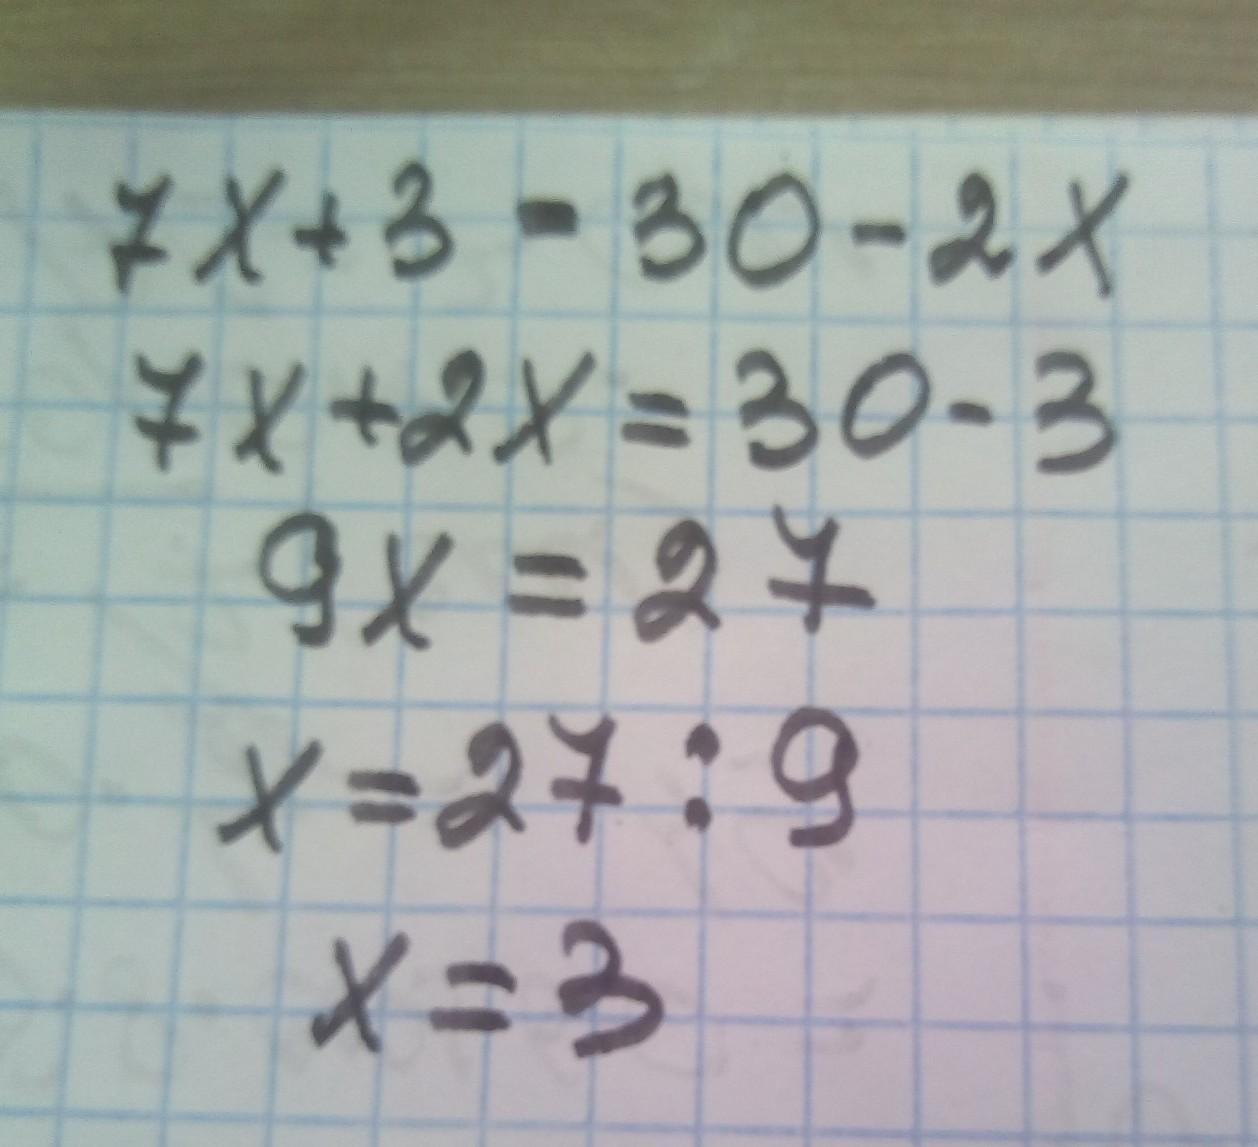 7x+3-30-2x
7x+2x=30-3
9x=27
x=27:9
x=3